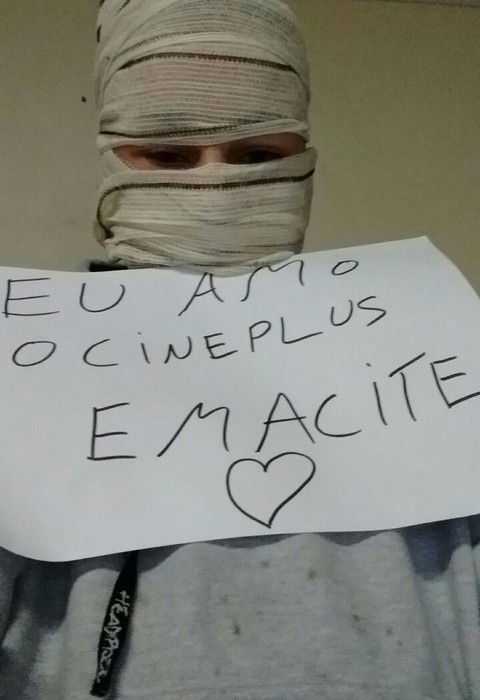 EU AMO
O CiNEPLUS
EMACiTE